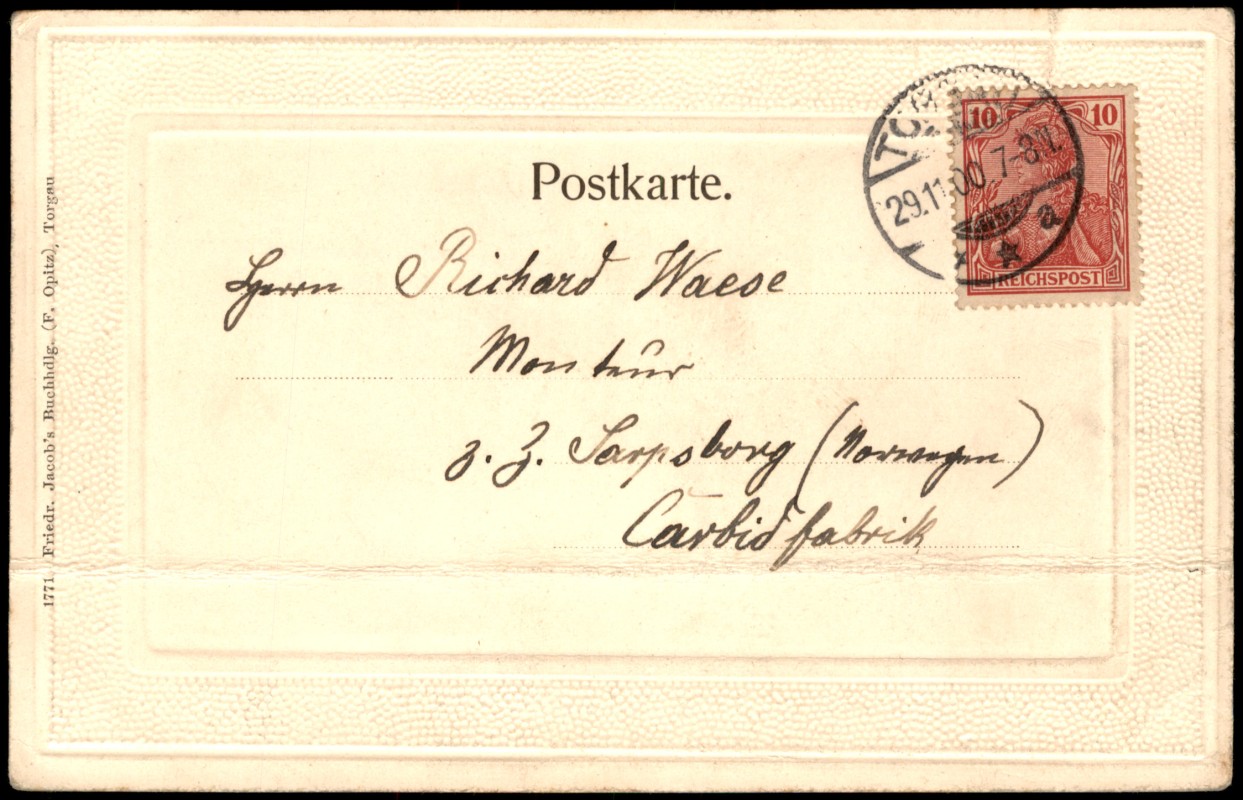 Postkarte.
Herrn Richard Waese
Monteur
z. Z. Sarpsborg (Norwegen)
Carbidfabrik
10 10
REICHSPOST
29.11.00 7-8N.
a
1771. Friedr. Jacob's Buchhdlg. (F. Opitz), Torgau